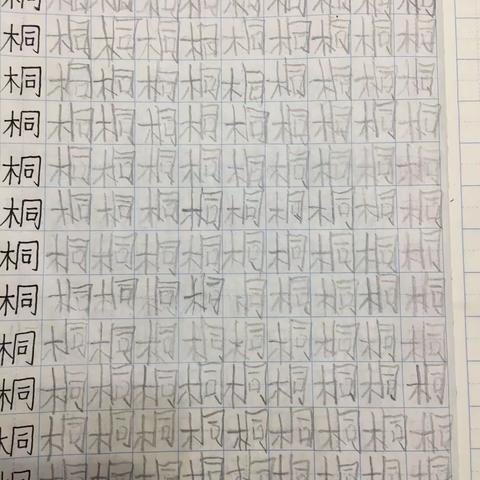 桐桐桐桐桐桐桐桐桐桐
桐桐桐桐桐桐桐桐桐桐
桐桐桐桐桐桐桐桐桐桐
桐桐桐桐桐桐桐桐桐桐
桐桐桐桐桐桐桐桐桐桐
桐桐桐桐桐桐桐桐桐桐
桐桐桐桐桐桐桐桐桐桐
桐桐桐桐桐桐桐桐桐桐
桐桐桐桐桐桐桐桐桐桐
桐桐桐桐桐桐桐桐桐桐
桐桐桐桐桐桐桐桐桐桐
桐桐桐桐桐桐桐桐桐桐